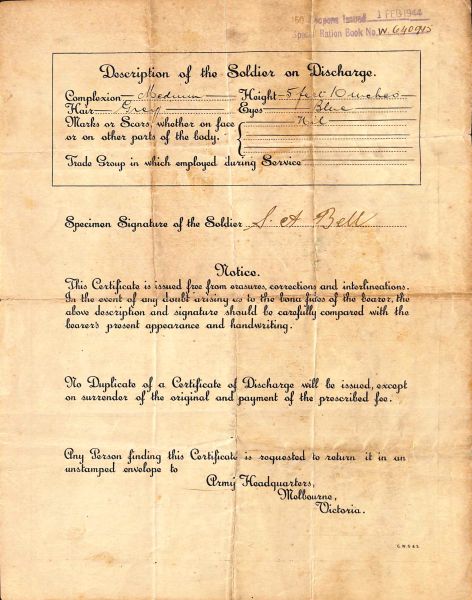 50 Coupons Issued 1 FEB 1944
Special Ration Book No. W. 640945
Description of the Soldier on Discharge.
Complexion Medium Height 5 feet 10 inches
Hair Grey Eyes Blue
Marks or Scars, whether on face Nil
or on other parts of the body.
Trade Group in which employed during Service
Specimen Signature of the Soldier S. A Bell
Notice.
This Certificate is issued free from erasures, corrections and interlineations.
In the event of any doubt arising as to the bona fides of the bearer, the
above description and signature should be carefully compared with the
bearer's present appearance and handwriting.
No Duplicate of a Certificate of Discharge will be issued, except
on surrender of the original and payment of the prescribed fee.
Any Person finding this Certificate is requested to return it in an
unstamped envelope to
Army Headquarters,
Melbourne,
Victoria.